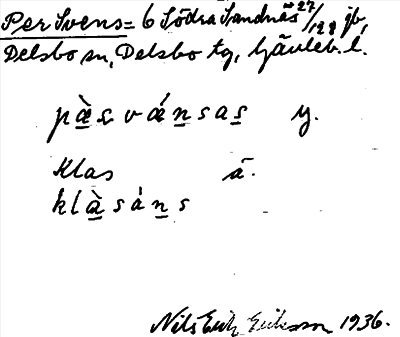 Per Svens = 6 Södra Sandnäs 27/128 jb,
Delsbo sn, Delsbo tg, Gävleb. l.
pàs vánsas y.
Klas ä.
klàsáns
Nils Erik Eriksson 1936.